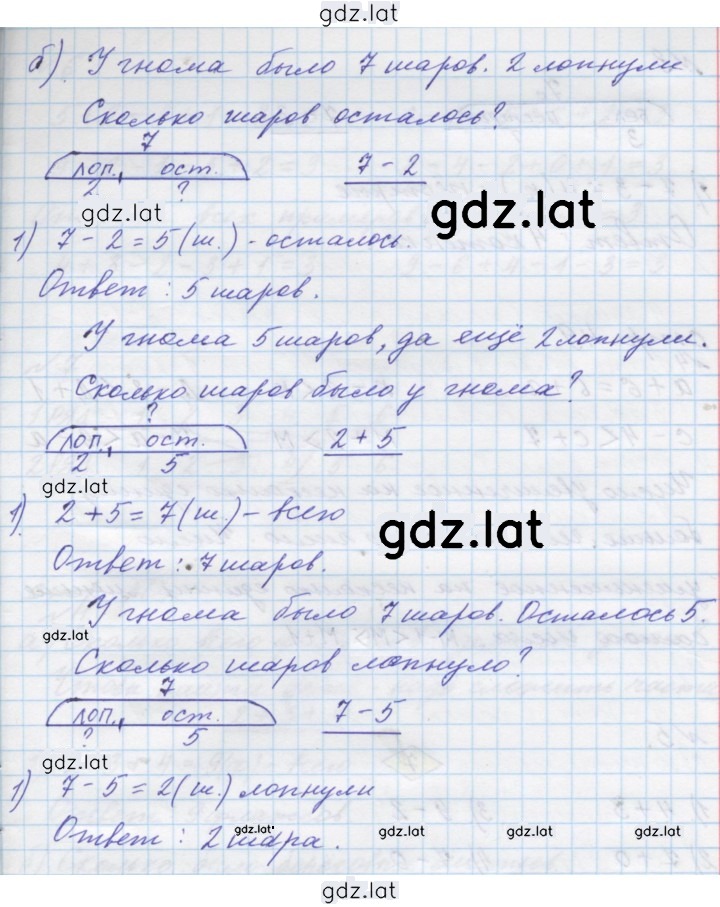 gdz.lat
б) У гнома было 7 шаров. 2 лопнули
Сколько шаров осталось?
7
лоп., ост. 7 - 2
2 ?
gdz.lat gdz.lat
1) 7 - 2 = 5 (ш.) - осталось.
Ответ : 5 шаров.
У гнома 5 шаров, да ещё 2 лопнули.
Сколько шаров было у гнома?
?
лоп., ост. 2 + 5
2 5
gdz.lat
1) 2 + 5 = 7 (ш.) - всего
gdz.lat
Ответ : 7 шаров.
У гнома было 7 шаров. Осталось 5.
gdz.lat
Сколько шаров лопнуло?
7
лоп., ост. 7 - 5
? 5
gdz.lat
1) 7 - 5 = 2 (ш.) лопнули
Ответ : 2 шара.
gdz.lat gdz.lat gdz.lat gdz.lat
gdz.lat